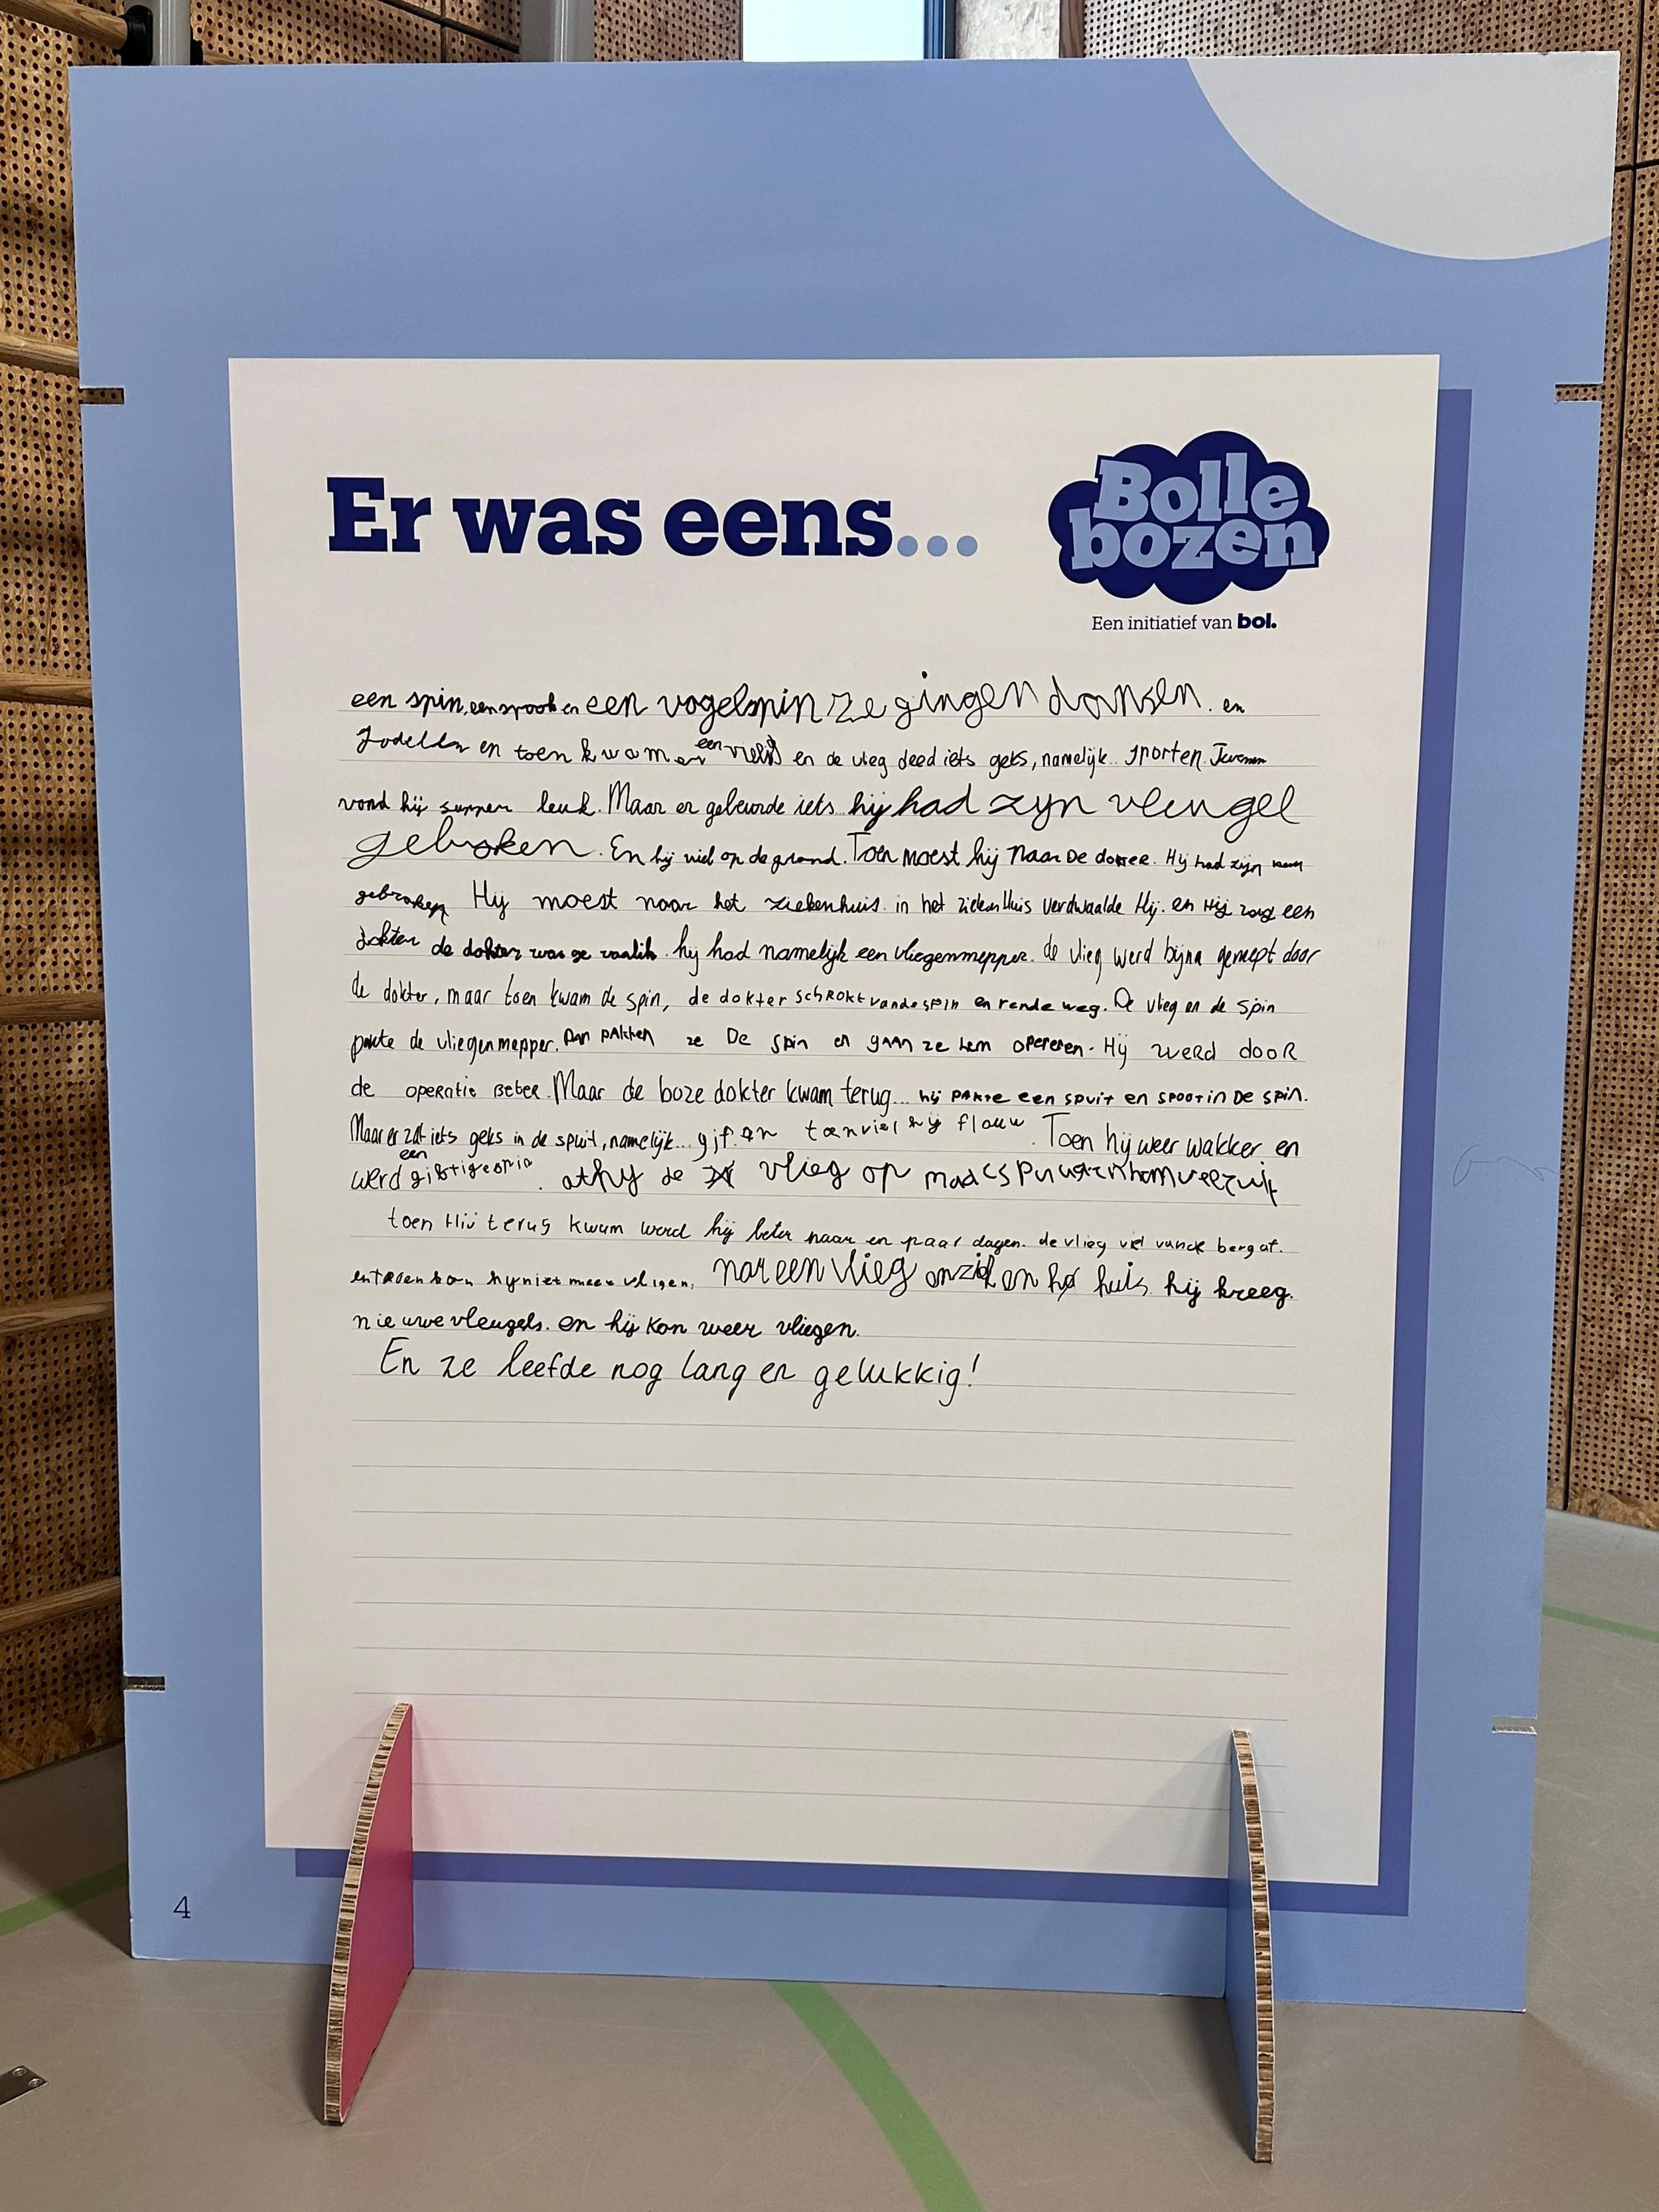 Er was eens...
Bolle
bozen
Een initiatief van bol.
een spin, een spook en een vogelspin ze gingen dansen. en
Jodelden en toen kwam er een vlieg en de vlieg deed iets geks, namelijk... sporten.
vond hij supper leuk. Maar er gebeurde iets hij had zyn vleugel
gebroken. En hij viel op de grond. Toen moest hij naar De dokter. Hij had zijn
gebroken Hij moest naar het ziekenhuis. in het ziekenHuis verdwaalde Hij. en Hij zag een
dokter de dokter was ge vaalik. hij had namelijk een vliegenmepper. de vlieg werd bijna gemept door
de dokter, maar toen kwam de spin, de dokter schrokt van de spin en rende weg. De vlieg en de spin
pakte de vliegenmepper. Dan pakken ze De spin en gaan ze hem opereren. Hij werd dooR
de operatie Beter. Maar de boze dokter kwam terug... hij pakte een spuit en spoot in De spin.
Maar er zat iets geks in de spuit, namelijk... gif. en toen viel hij flauw. Toen hij weer wakker en
werd een giftige spin. at hij de vlieg op maar spuugt hem weer uit
toen Hij terug kwam werd hij beter naar en paar dagen. de vlieg viel vande berg af.
en toen kon hij niet meer vligen. nar een vlieg en huis hij kreeg.
nieuwe vleugels. en hij kon weer vliegen.
En ze leefde nog lang en gelukkig!
4